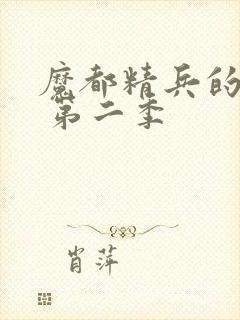 魔都精兵的
第二季
肖萍